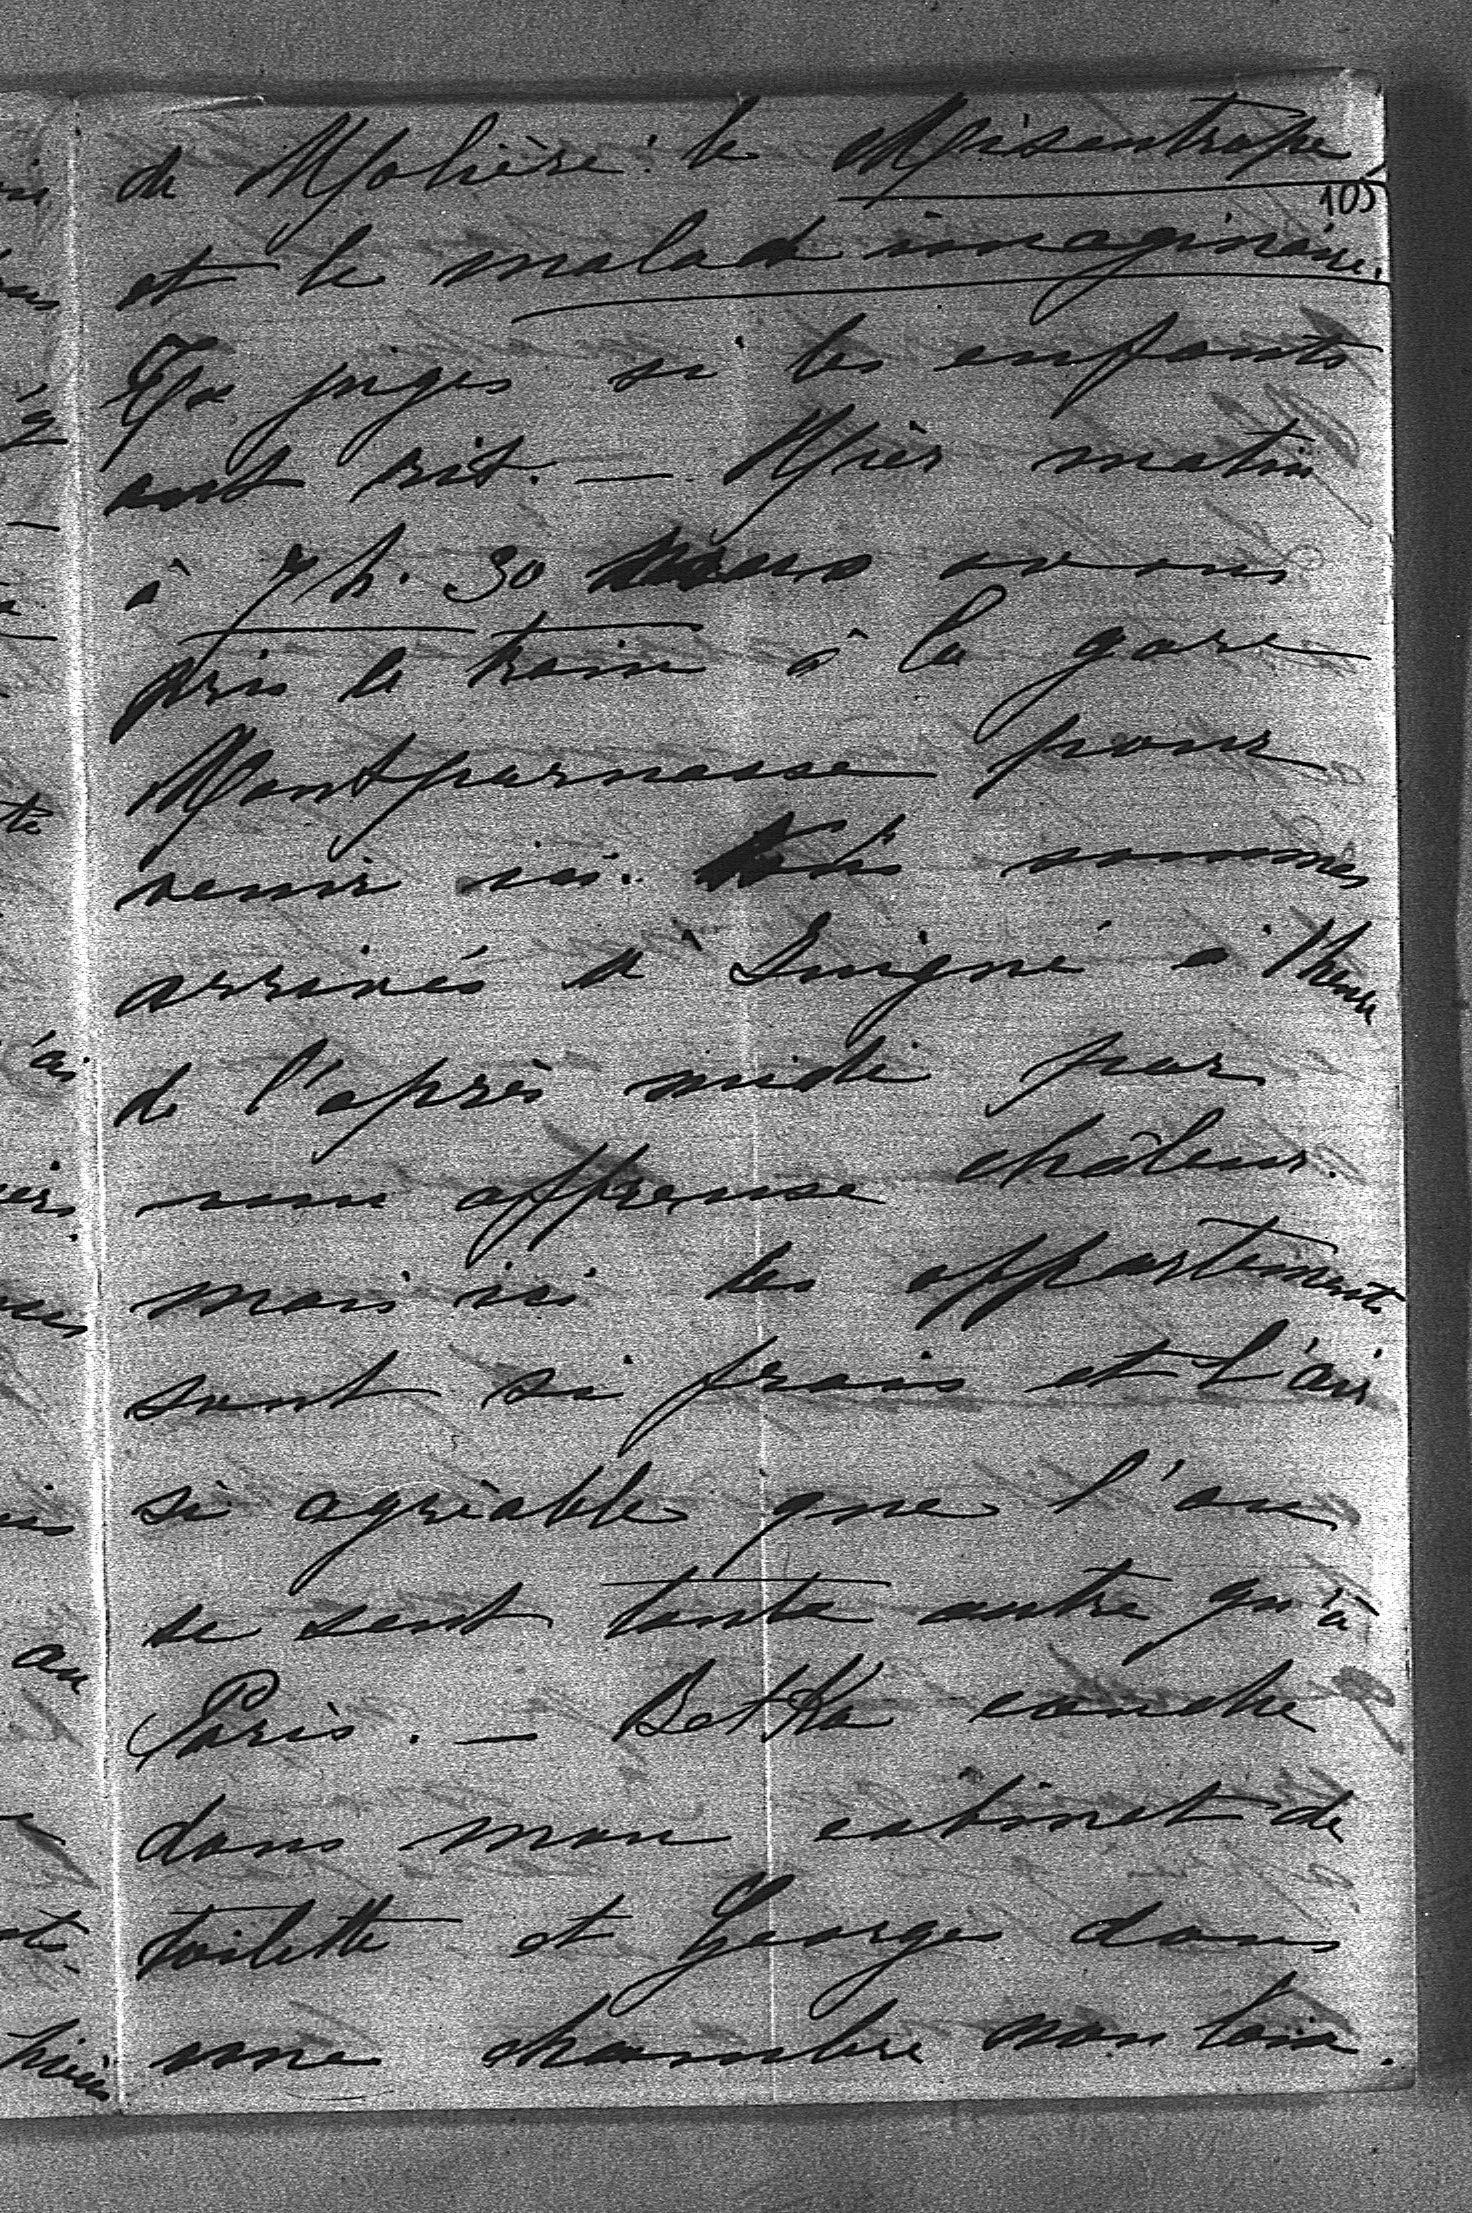 de Molière : le Misentrope,
105
et le malade imaginaire.
Tu juges si les enfants
ont rit. — Hièr matin
à 7 h. 30 nous avons
pris le train à la gare
Montparnasse pour
venir ici. Nous sommes
arrivés à Juigné à 1 heure
de l'après midi par
une affreuse châleur.
mais ici les appartements
sont si frais et l'air
si agréable que l'on
se sent toute autre qu'à
Paris. — BetKa couche
dans mon cabinet de
toilette et Georges dans
une chambre non loin.